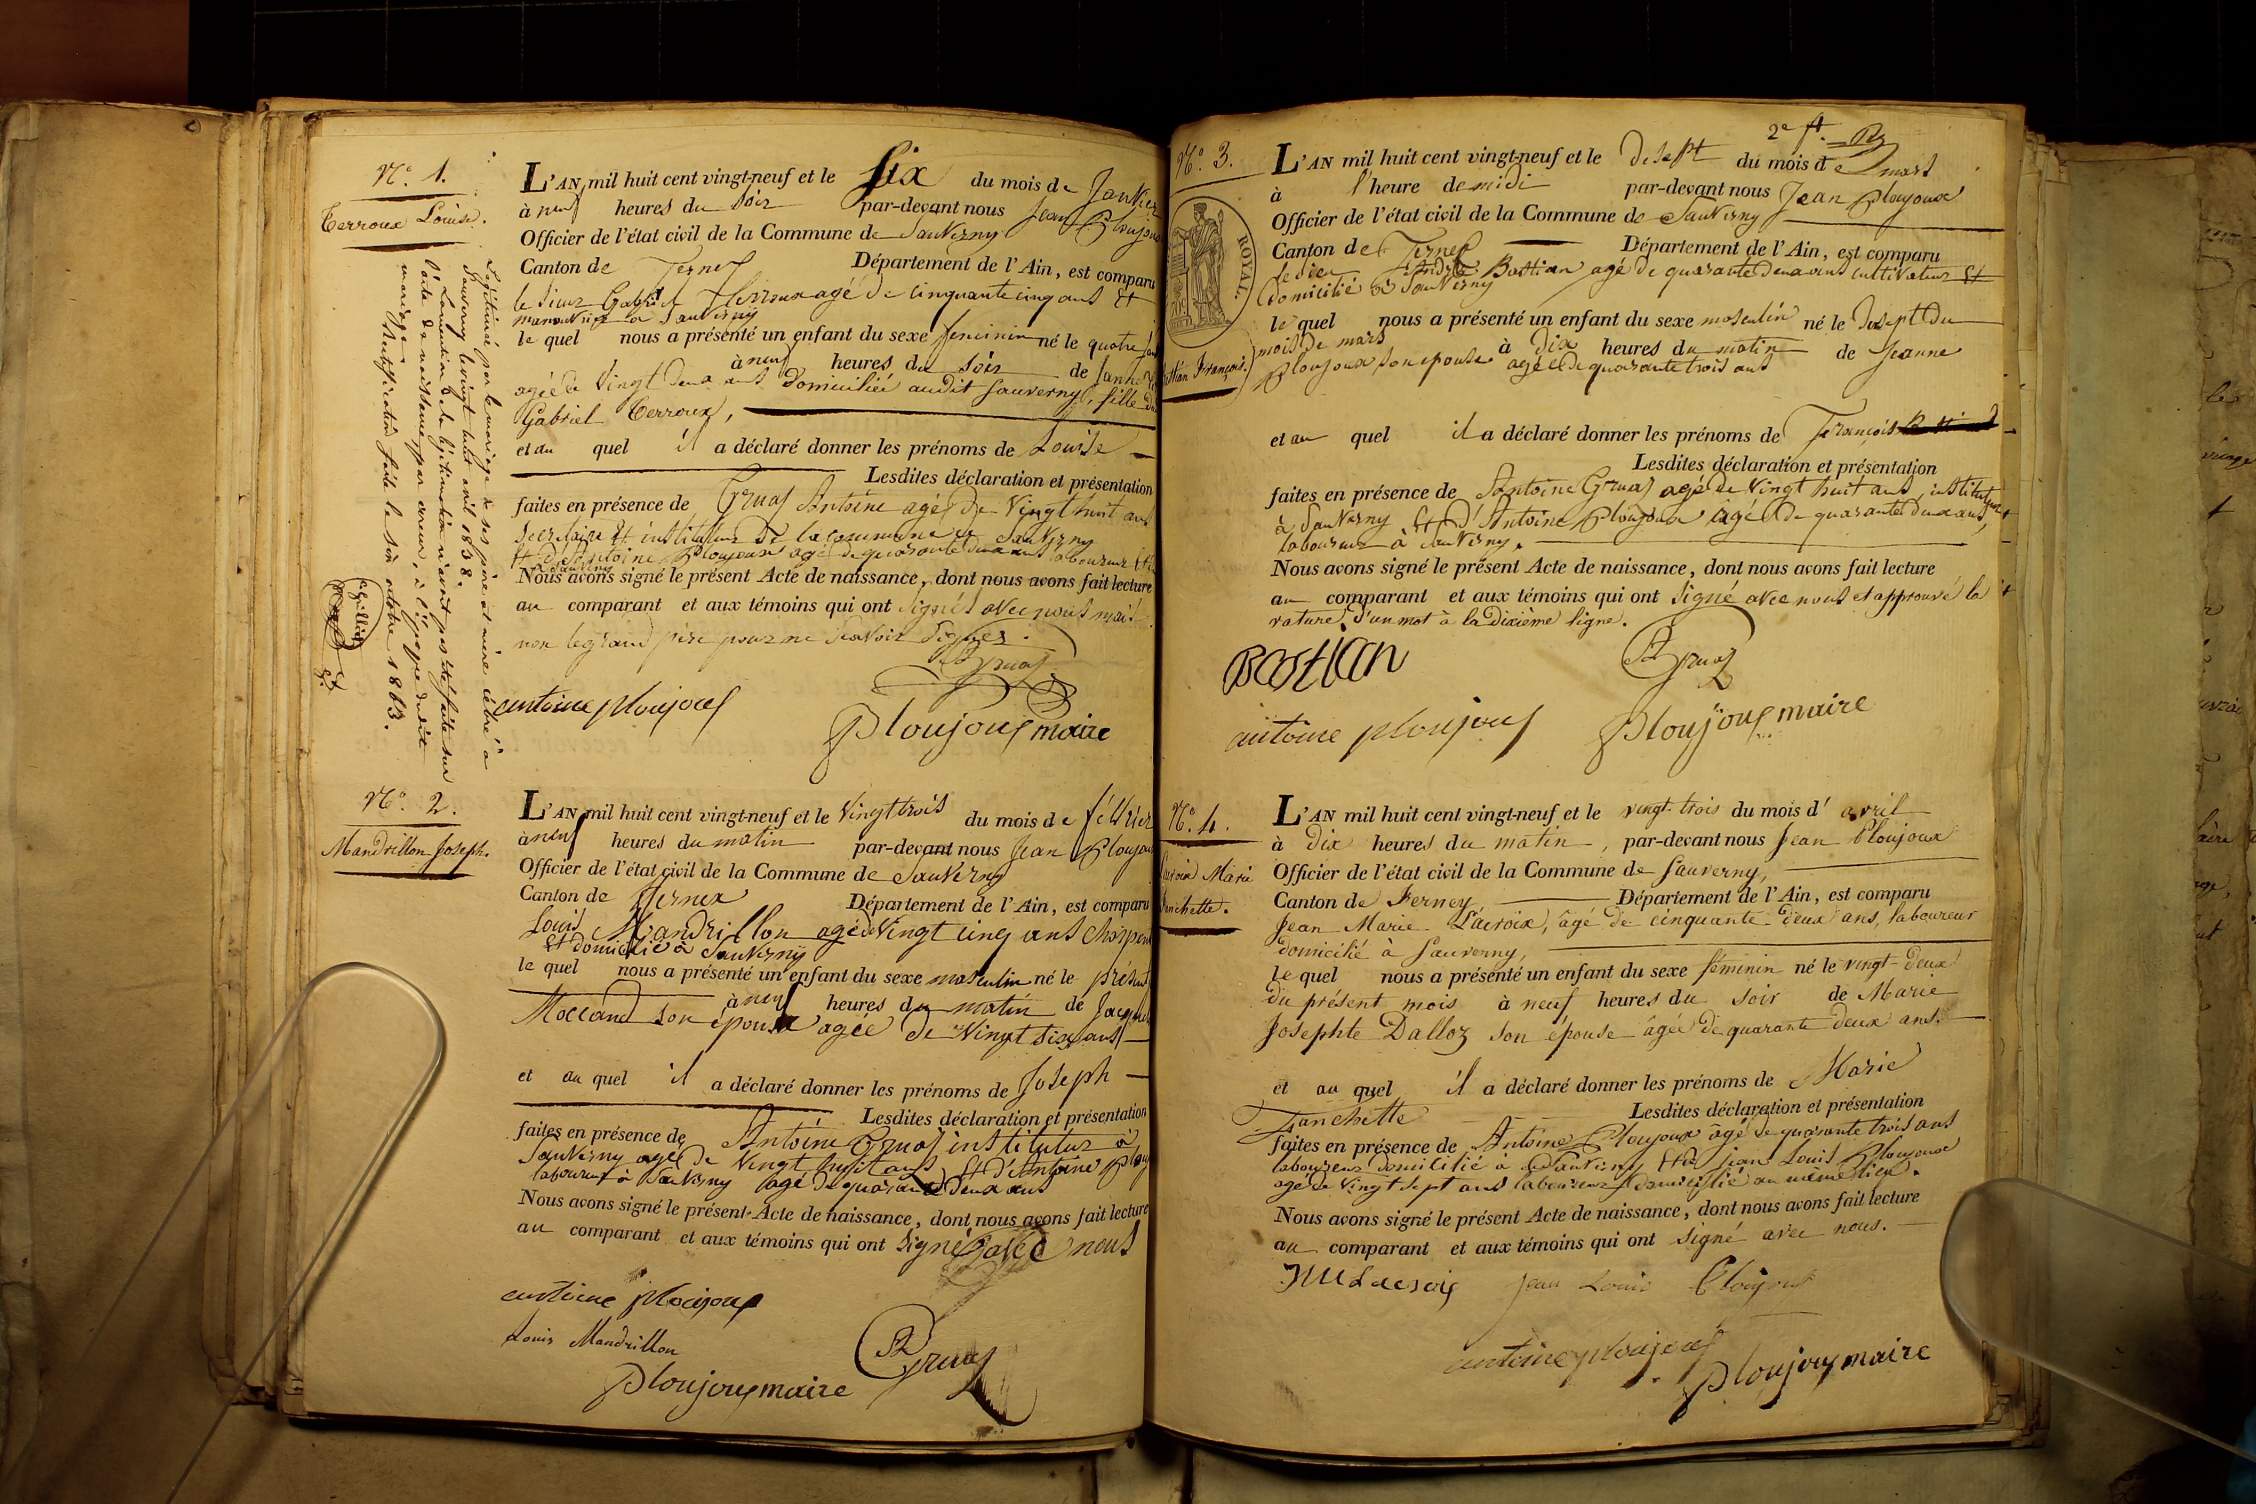 N.° 1.
Terroux Louise.
L'AN mil huit cent vingt-neuf et le six du mois de Janvier
à neuf heures du soir par-devant nous Jean Ploujoux
Officier de l'état civil de la Commune de Sauverny
Canton de Ferney Département de l'Ain, est comparu
le sieur Gabriel Terroux agé de cinquante cinq ans et
manouvrier a Sauverny
le quel nous a présenté un enfant du sexe feminin né le quatre
à neuf heures du soir de
agée de vingt deux ans domiciliée audit Sauverny, fille de
Gabriel Terroux,
et au quel il a déclaré donner les prénoms de Louise
Lesdites déclaration et présentation
faites en présence de Gruaz Antoine agé de Vingt huit ans
Secretaire et instituteur de la commune de Sauverny
et d'Antoine Ploujoux agé de quarante deux ans laboureur
a Sauverny
Nous avons signé le présent Acte de naissance, dont nous avons fait lecture
au comparant et aux témoins qui ont Signés avec nous mais
non le grand père pour ne Savoir Signer.
A Gruaz
antoine ploujoux
Ploujoux maire
Légitimé par le mariage de ses père et mère célébré à
Sauverny le vingt huit avril 1838.
La mention de légitimation n'ayant pas été faite sur
l'acte de naissance par erreur, à l'époque dudit
mariage.
Rectification faite le six octobre 1863.
N.° 2.
Mandrillon Joseph.
L'AN mil huit cent vingt-neuf et le Vingt trois du mois de février
à neuf heures du matin par-devant nous Jean Ploujoux
Officier de l'état civil de la Commune de Sauverny
Canton de Fernex Département de l'Ain, est comparu
Louis Mandrillon agé de Vingt cinq ans
et domicilié à Sauverny
le quel nous a présenté un enfant du sexe masculin né le présent
à neuf heures du matin de
Moccand son épouse agée de Vingt six ans
et au quel il a déclaré donner les prénoms de Joseph
Lesdites déclaration et présentation
faites en présence de Antoine Gruaz instituteur à
Sauverny agé de Vingt huit ans et d'Antoine
laboureur à Sauverny agé de quarante deux ans
Nous avons signé le présent Acte de naissance, dont nous avons fait lecture
au comparant et aux témoins qui ont Signé avec nous
antoine ploujoux
Louis Mandrillon
A Gruaz
Ploujoux maire
2e ft.
N.° 3.
ROYAL.
François.
L'AN mil huit cent vingt-neuf et le desept du mois de mars
à l'heure de midi par-devant nous Jean Ploujoux
Officier de l'état civil de la Commune de Sauverny
Canton de Ferney Département de l'Ain, est comparu
le sieur André Bastian agé de quarante deux ans cultivateur et
domicilié à Sauverny
le quel nous a présenté un enfant du sexe masculin né le desept du
mois de mars à dix heures du matin de Jeanne
Ploujoux son epouse agée de quarante trois ans
et au quel il a déclaré donner les prénoms de François
Lesdites déclaration et présentation
faites en présence de Antoine Gruaz agé de Vingt huit ans, instituteur
à Sauverny et d'Antoine Ploujoux agé de quarante deux ans,
laboureur à Sauverny.
Nous avons signé le présent Acte de naissance, dont nous avons fait lecture
au comparant et aux témoins qui ont Signé avec nous et approuvé la
rature d'un mot à la Dixième ligne.
BASTIAN
A Gruaz
antoine ploujoux
Ploujoux maire
N.° 4.
Lacroix Marie
Fanchette.
L'AN mil huit cent vingt-neuf et le vingt-trois du mois d'avril
à dix heures du matin, par-devant nous Jean Ploujoux
Officier de l'état civil de la Commune de Sauverny,
Canton de Ferney Département de l'Ain, est comparu
Jean Marie Lacroix, âgé de cinquante-deux ans, laboureur
domicilié à Sauverny,
le quel nous a présenté un enfant du sexe féminin né le vingt-deux
du présent mois à neuf heures du soir de Marie
Josephte Dalloz son épouse âgée de quarante deux ans.
et au quel il a déclaré donner les prénoms de Marie
Fanchette Lesdites déclaration et présentation
faites en présence de Antoine Ploujoux âgé de quarante trois ans
laboureur domicilié à Sauverny et de Jean Louis Ploujoux
agé de Vingt Sept ans laboureur domicilié au même lieu.
Nous avons signé le présent Acte de naissance, dont nous avons fait lecture
au comparant et aux témoins qui ont signé avec nous.
JM Lacroix
Jean Louis Ploujoux
antoine ploujoux
Ploujoux maire